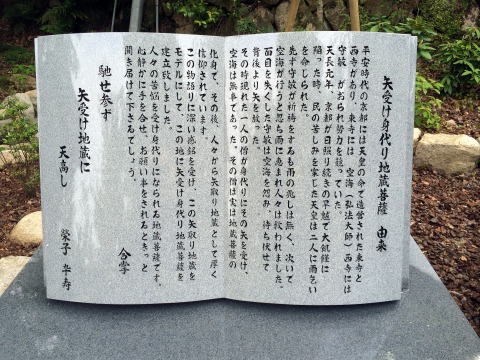 矢受け身代り地蔵菩薩　由来
平安時代の京都には天皇の命で造営された東寺と
西寺があり、東寺に　空海（弘法大師）西寺には
守敏　がおられ勢力を競っていた。
天長元年、京都が日照り続きの旱魃で大飢饉に
陥った時、民の苦しみを哀じた天皇は二人に雨乞い
を命じられた。
先ず守敏が祈祷をするも雨の兆しは無く、次いで
空海が行うと忽ち雨に恵まれ人々は救われました。
面目を失くした守敏は空海を怨み、待ち伏せて
背後より矢を放った。
その時現れた一人の僧が身代りにその矢を受け、
空海は無事であった。その僧は実は地蔵菩薩の
化身で、その後、人々から矢取り地蔵として厚く
信仰されています。
この物語りに深い感銘を受け、この矢取り地蔵を
モデルにして、この地に矢受け身代り地蔵菩薩を
建立致しました。
人々の苦悩を受け身代りになられる地蔵菩薩です。
心静かに手を合せ、お願い事をされるときっと
聞き届けて下さるでしょう。
合掌
馳せ参ず
矢受け地蔵に
天高し
榮子　半寿